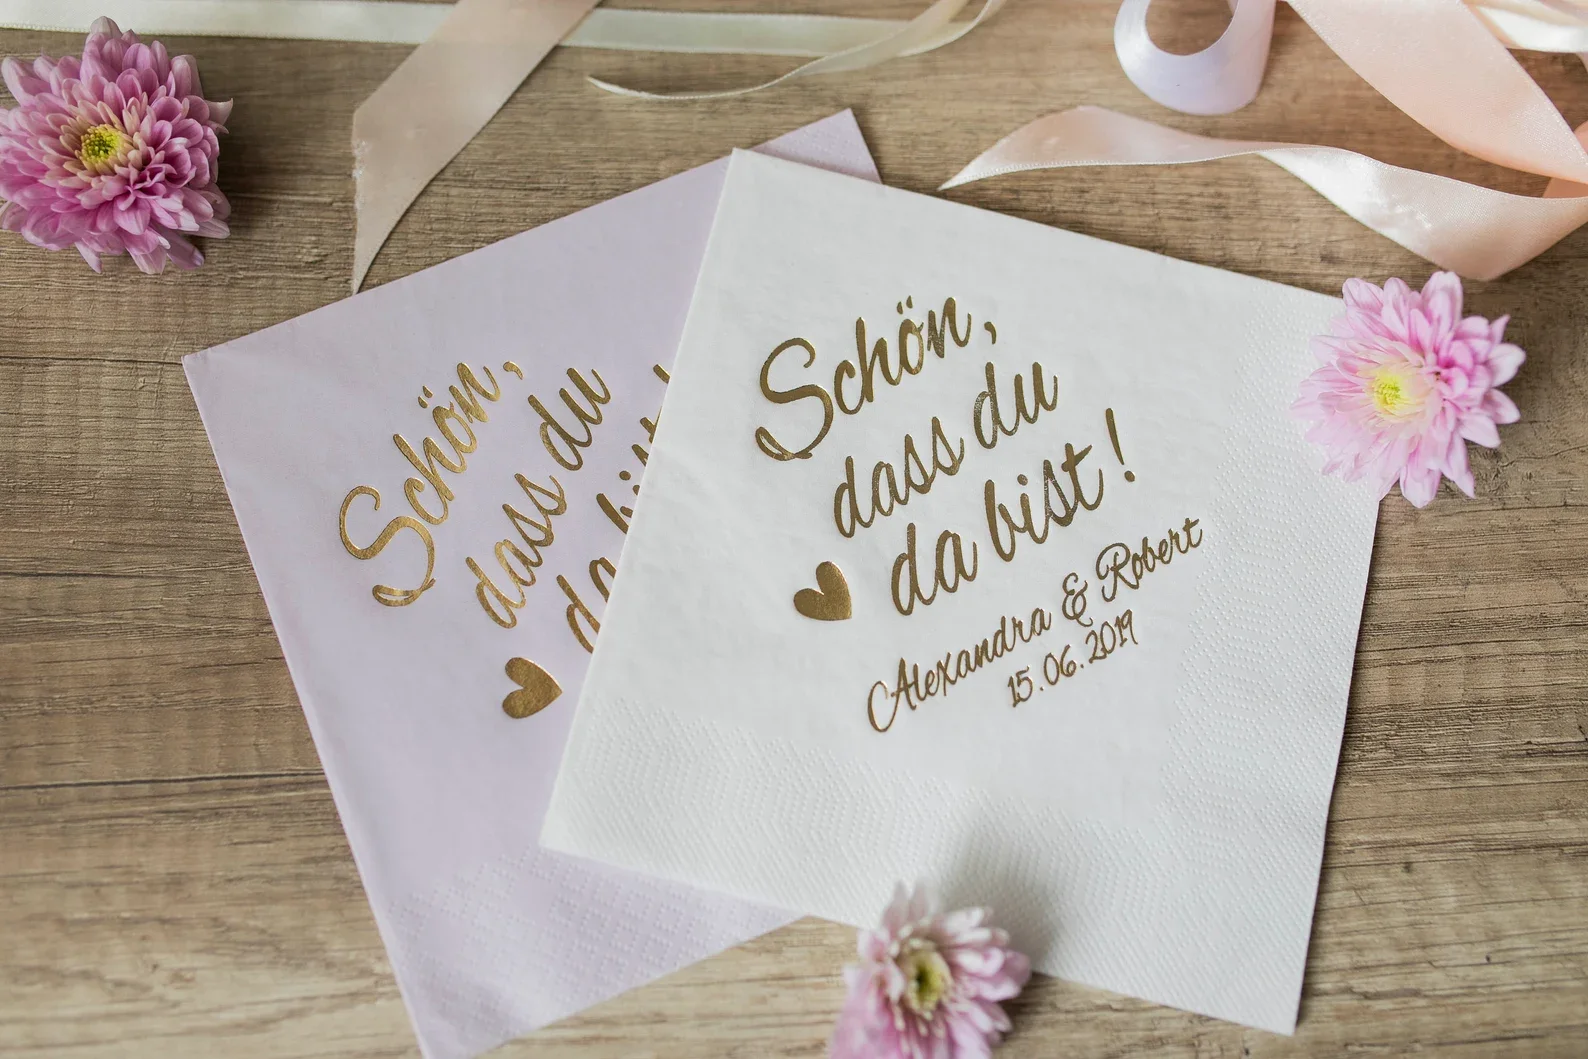 Schön,
dass du
da
Schön,
dass du
da bist!
Alexandra & Robert
15.06.2019